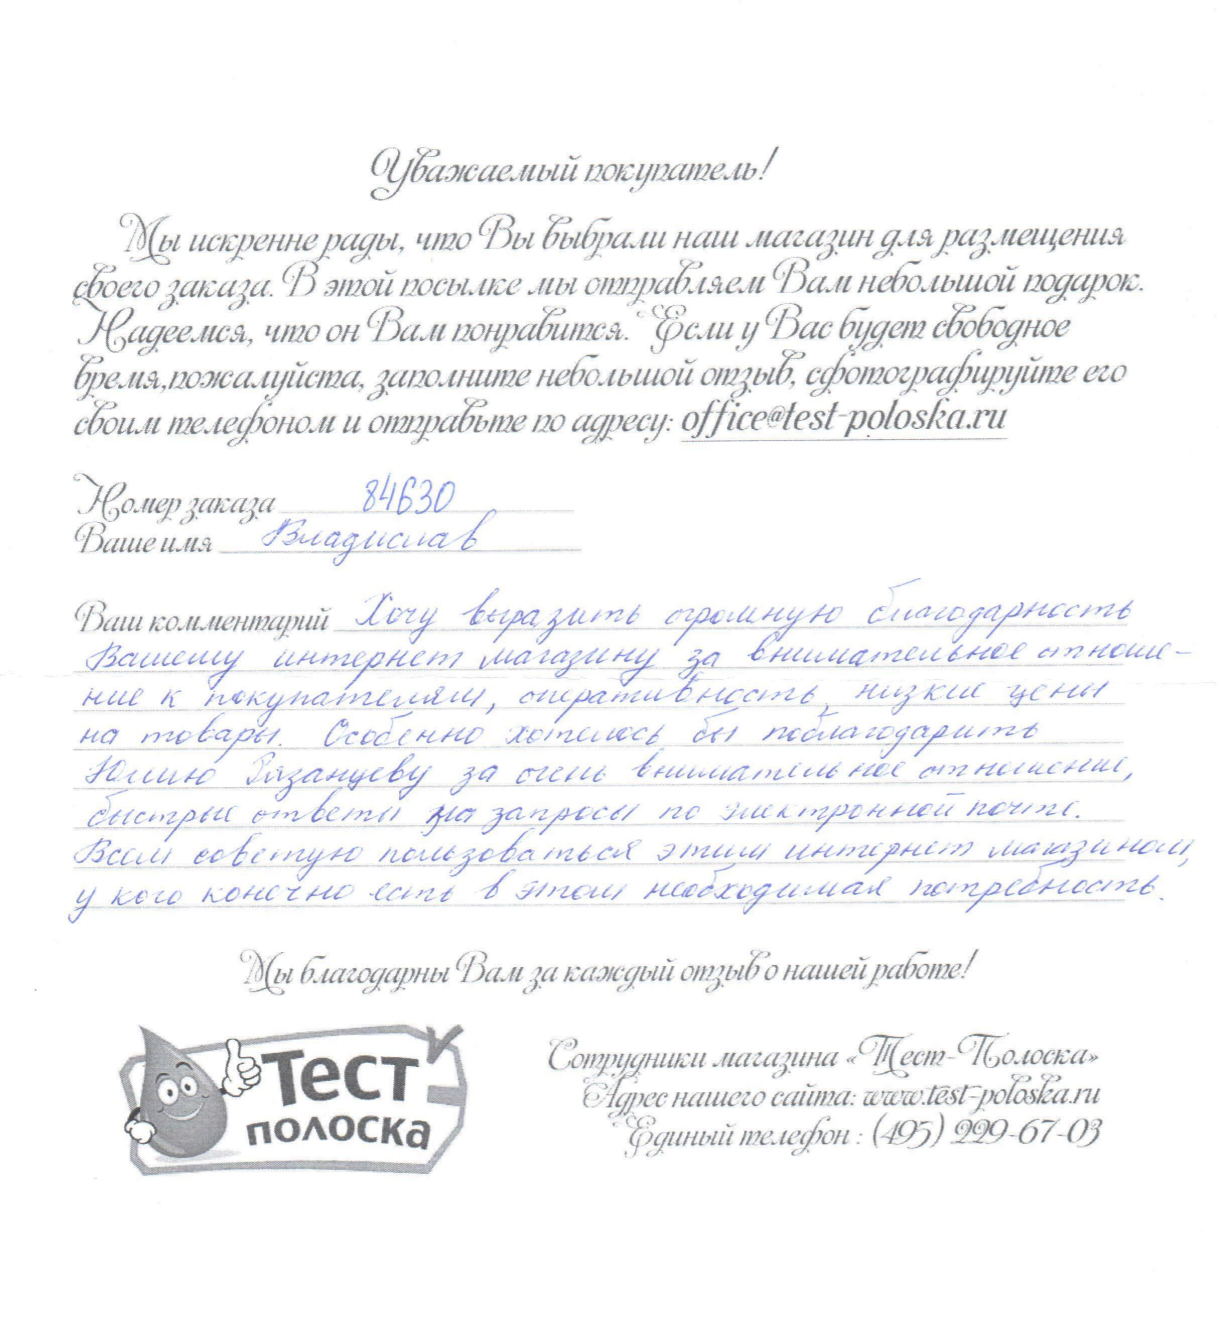 Уважаемый покупатель!
Мы искренне рады, что Вы выбрали наш магазин для размещения
своего заказа. В этой посылке мы отправляем Вам небольшой подарок.
Надеемся, что он Вам понравится. Если у Вас будет свободное
время,пожалуйста, заполните небольшой отзыв, сфотографируйте его
своим телефоном и отправьте по адресу: office@test-poloska.ru
Номер заказа 84630
Ваше имя Владислав
Ваш комментарий Хочу выразить огромную благодарность
Вашему интернет магазину за внимательное отноше-
ние к покупателям, оперативность, низкие цены
на товары. Особенно хотелось бы поблагодарить
Юлию Рязанцеву за очень внимательное отношение,
быстрые ответы на запросы по электронной почте.
Всем советую пользоваться этим интернет магазином,
у кого конечно есть в этом необходимая потребность.
Мы благодарны Вам за каждый отзыв о нашей работе!
Тест
полоска
Сотрудники магазина «Тест-Полоска»
Адрес нашего сайта: www.test-poloska.ru
Единый телефон : (495) 229-67-03